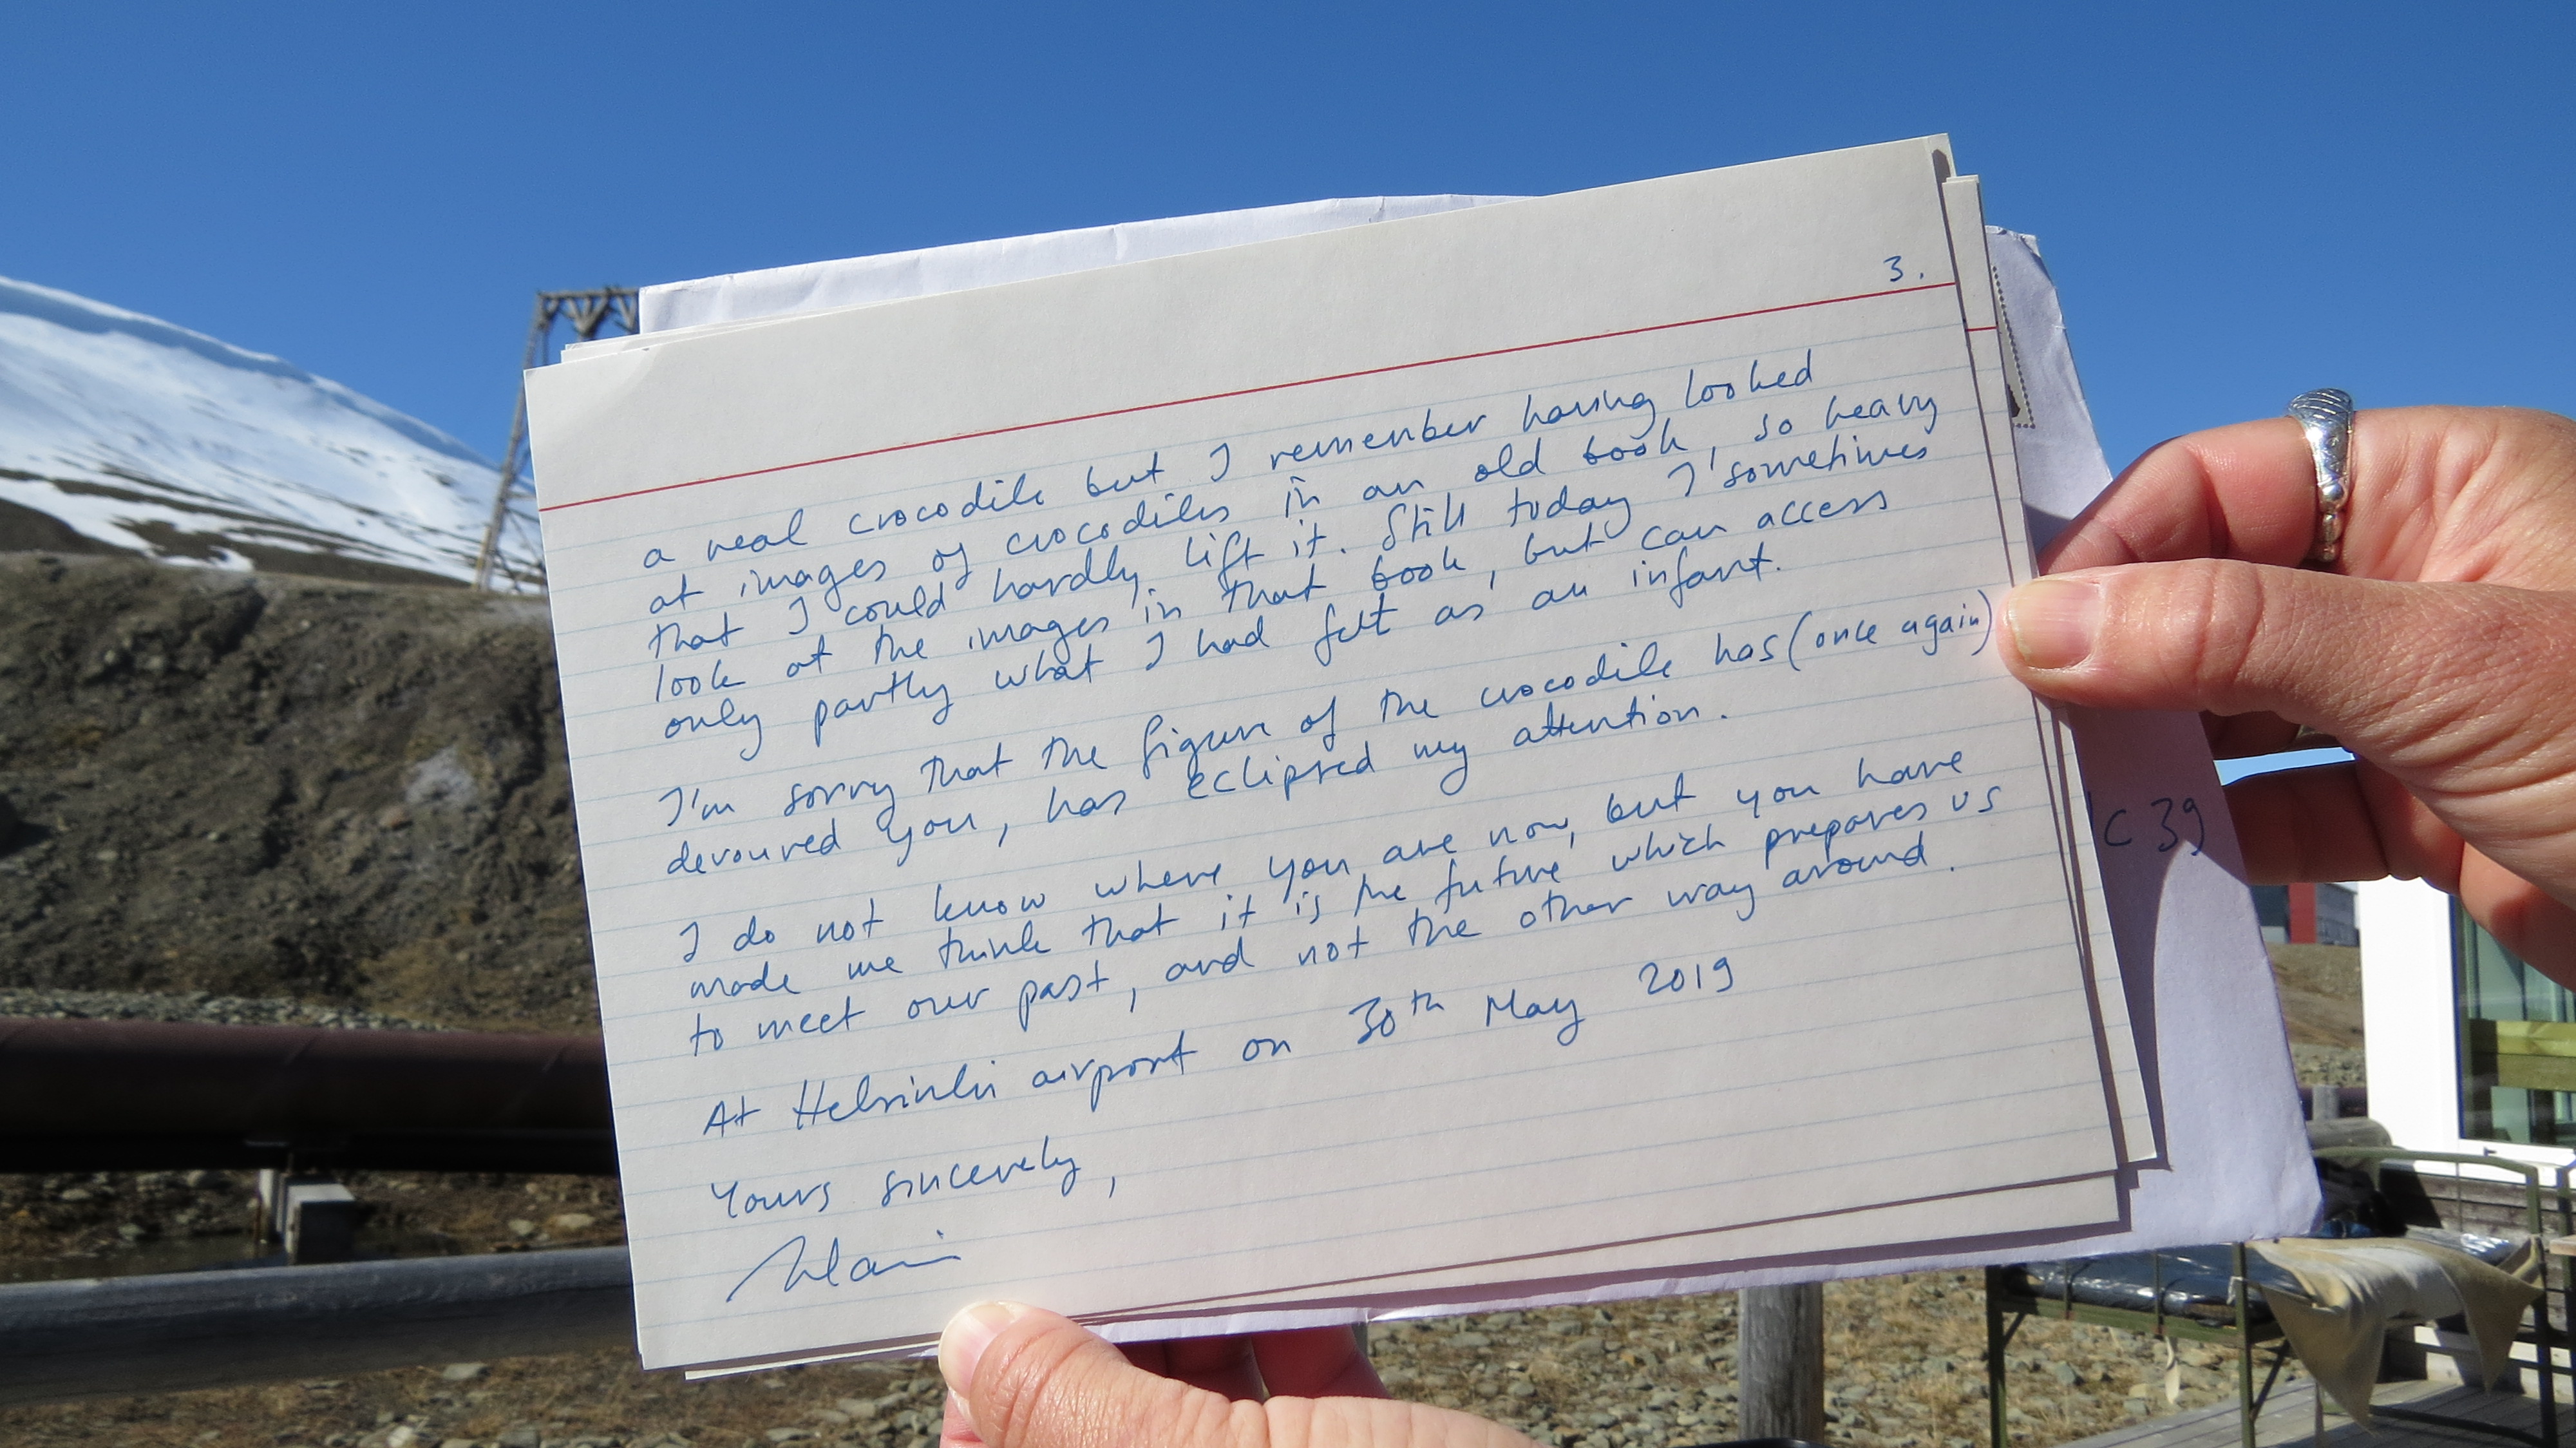 3.
a real crocodile but I remember having looked
at images of crocodiles in an old book, so heavy
that I could hardly lift it. Still today I sometimes
look at the images in that book, but can access
only partly what I had felt as an infant.
I'm sorry that the figure of the crocodile has (once again)
devoured you, has eclipsed my attention.
I do not know where you are now, but you have
made me think that it is the future which prepares us
to meet our past, and not the other way around.
At Helsinki airport on 30th May 2019
Yours sincerely,
C 39